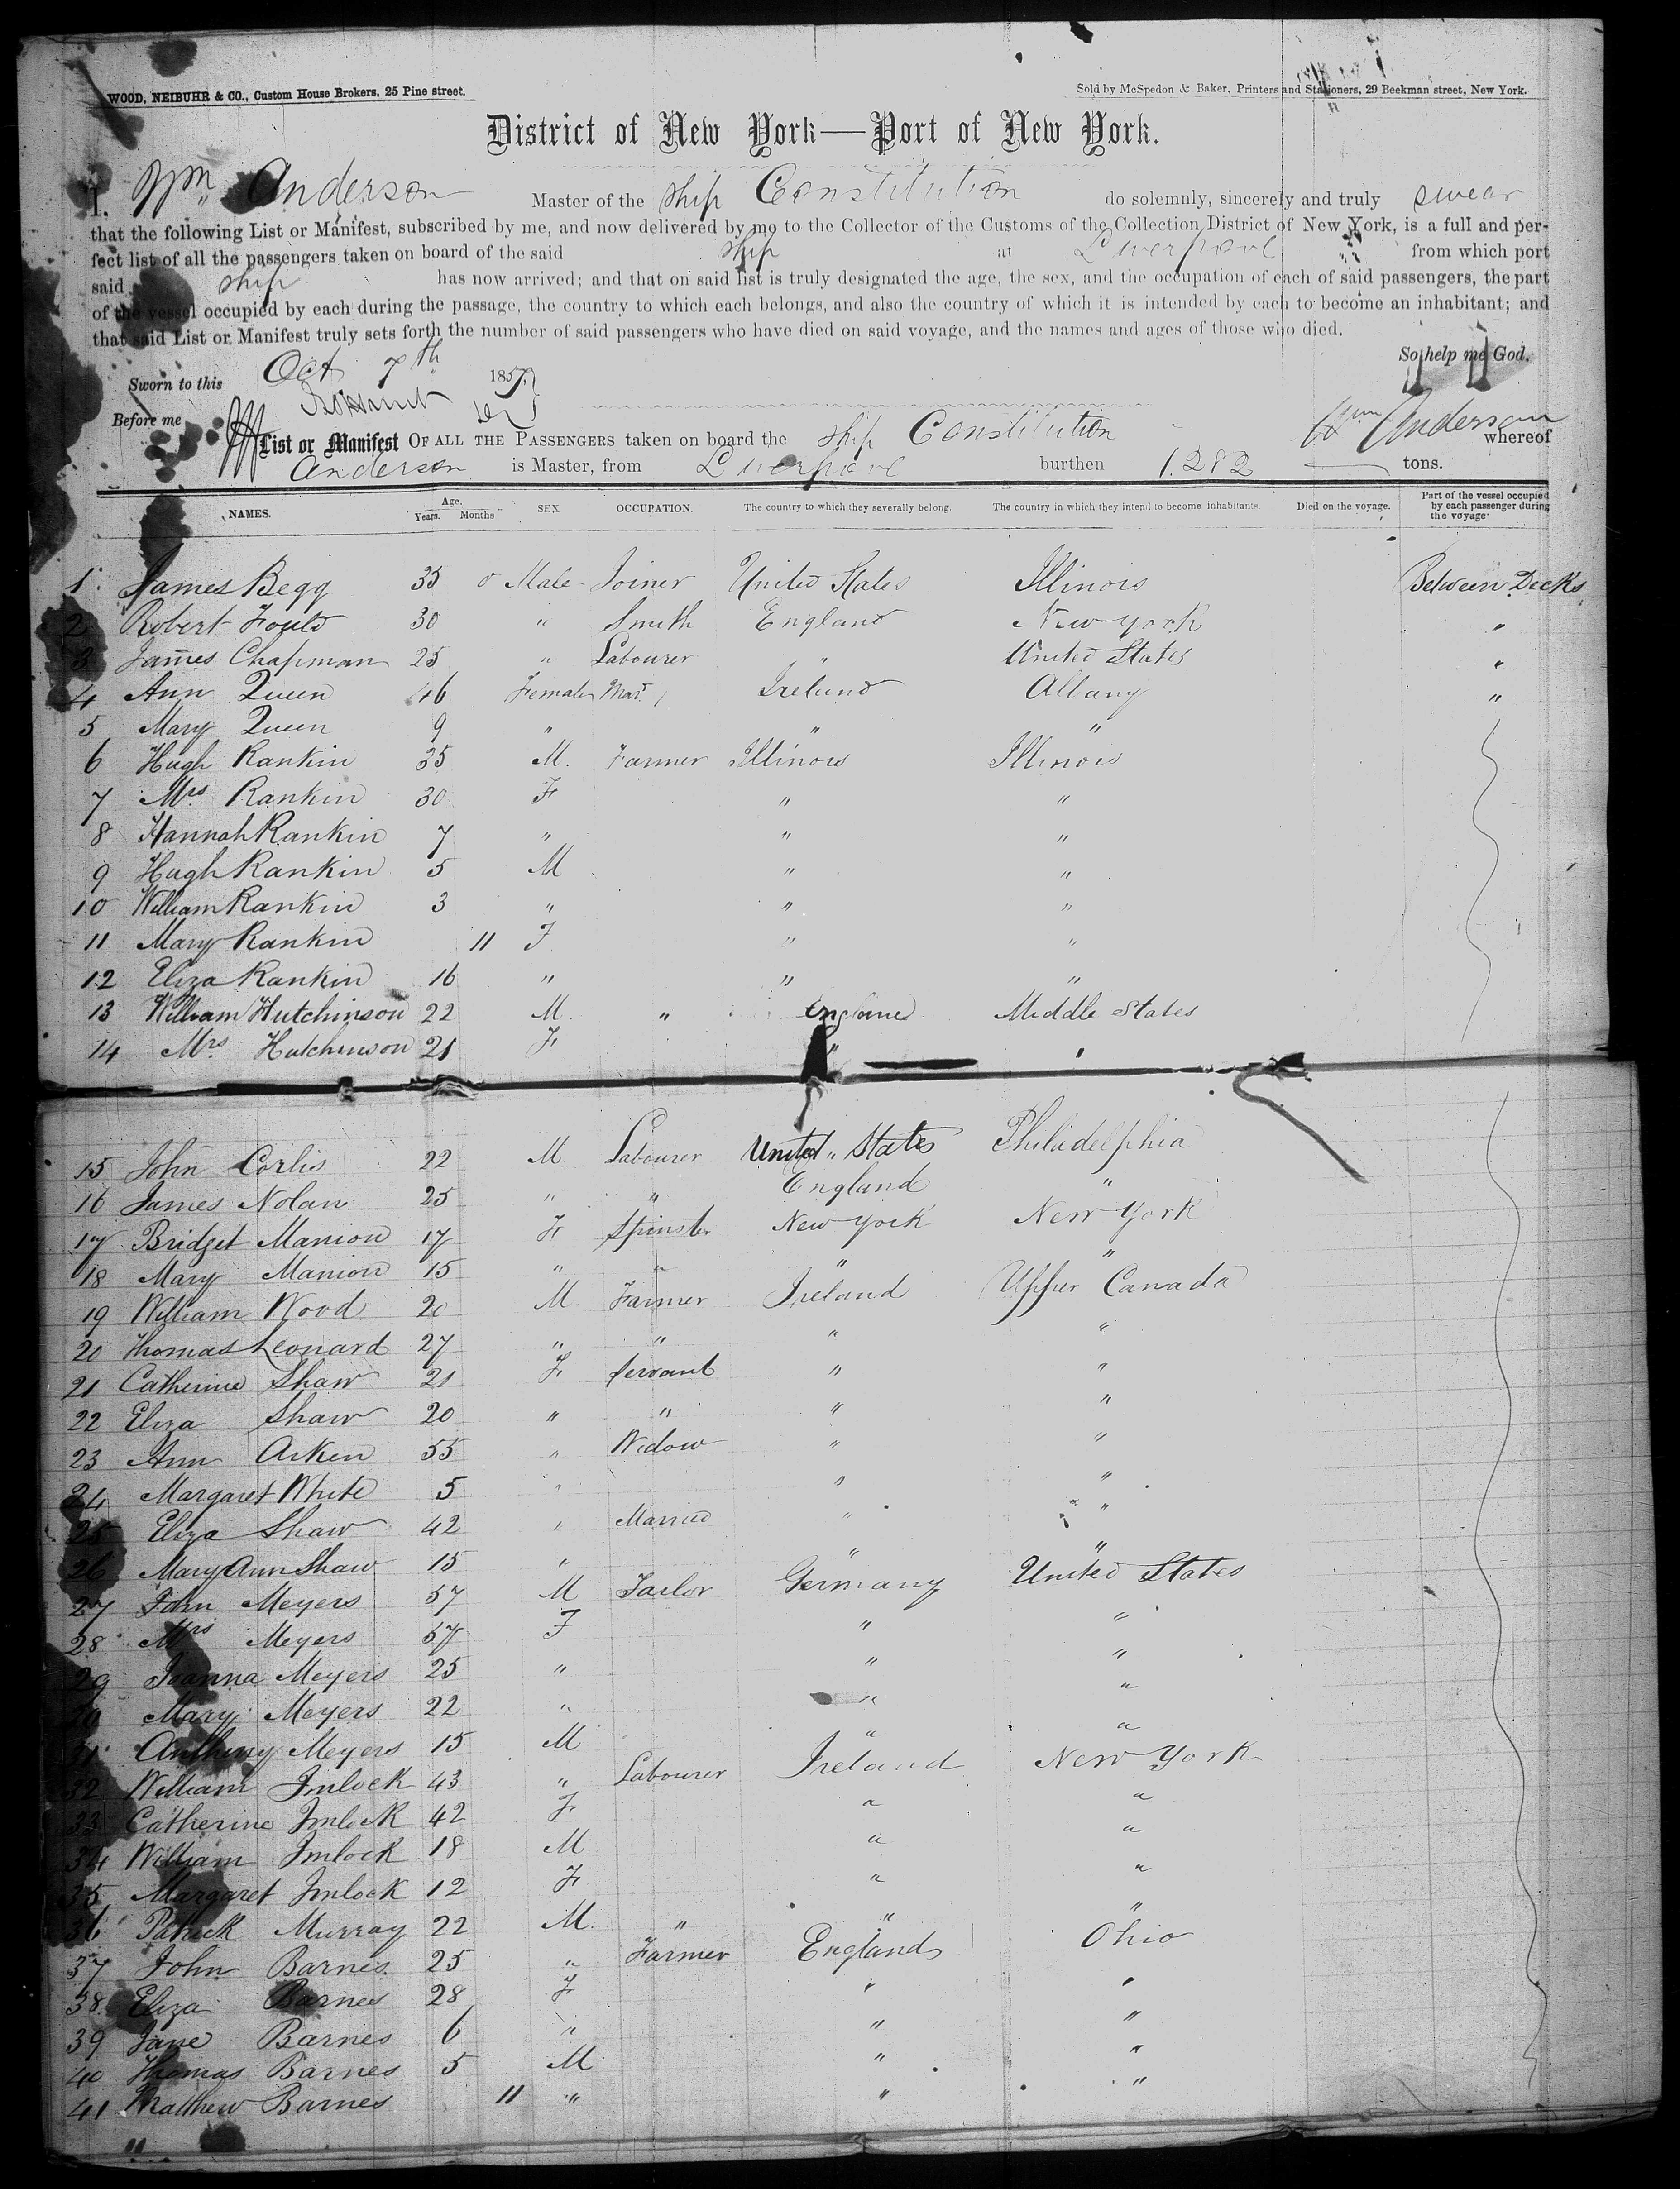 WOOD, NEIBUHR & CO., Custom House Brokers, 25 Pine street.
Sold by McSpedon & Baker, Printers and Stationers, 29 Beekman street, New York.
District of New York—Port of New York.
I, Wm Anderson Master of the ship Constitution do solemnly, sincerely and truly swear
that the following List or Manifest, subscribed by me, and now delivered by me to the Collector of the Customs of the Collection District of New York, is a full and per-
fect list of all the passengers taken on board of the said ship at Liverpool from which port
said ship has now arrived; and that on said list is truly designated the age, the sex, and the occupation of each of said passengers, the part
of the vessel occupied by each during the passage, the country to which each belongs, and also the country of which it is intended by each to become an inhabitant; and
that said List or Manifest truly sets forth the number of said passengers who have died on said voyage, and the names and ages of those who died.
So help me God.
Sworn to this Oct 7th 1857
Before me
Wm Anderson
List or Manifest OF ALL THE PASSENGERS taken on board the ship Constitution whereof
Anderson is Master, from Liverpool burthen 1282 tons.
NAMES. Age. Years. Months SEX OCCUPATION. The country to which they severally belong. The country in which they intend to become inhabitants. Died on the voyage. Part of the vessel occupied by each passenger during the voyage
1 James Begg 35 0 Male Joiner United States Illinois Between Decks
2 Robert Fould 30 " Smith England New York "
3 James Chapman 25 " Labourer " United States "
4 Ann Queen 46 Female Mard. Ireland Albany "
5 Mary Queen 9 " " "
6 Hugh Rankin 35 M. Farmer Illinois Illinois
7 Mrs Rankin 30 F " "
8 Hannah Rankin 7 " " "
9 Hugh Rankin 5 M " "
10 William Rankin 3 " " "
11 Mary Rankin 11 F " "
12 Eliza Rankin 16 " " "
13 William Hutchinson 22 M. " England Middle States
14 Mrs Hutchinson 21 F " "
15 John Corlis 22 M Labourer United States Philadelphia
16 James Nolan 25 " " England "
17 Bridget Manion 17 F Spinster New York New York
18 Mary Manion 15 " " " "
19 William Wood 20 M Farmer Ireland Upper Canada
20 Thomas Leonard 27 " " " "
21 Catherine Shaw 21 F Servant " "
22 Eliza Shaw 20 " " " "
23 Ann Aiken 55 " Widow " "
24 Margaret White 5 " " "
25 Eliza Shaw 42 " Married " "
26 Mary Ann Shaw 15 " " "
27 John Meyers 57 M Tailor Germany United States
28 Mrs Meyers 57 F " "
29 Joanna Meyers 25 " " "
30 Mary Meyers 22 " " "
31 Anthony Meyers 15 M " "
32 William Imlock 43 " Labourer Ireland New York
33 Catherine Imlock 42 F " "
34 William Imlock 18 M " "
35 Margaret Imlock 12 F " "
36 Patrick Murray 22 M. " " "
37 John Barnes 25 " Farmer England Ohio
38 Eliza Barnes 28 F " "
39 Jane Barnes 6 " " "
40 Thomas Barnes 5 M " "
41 Matthew Barnes 11 " " "